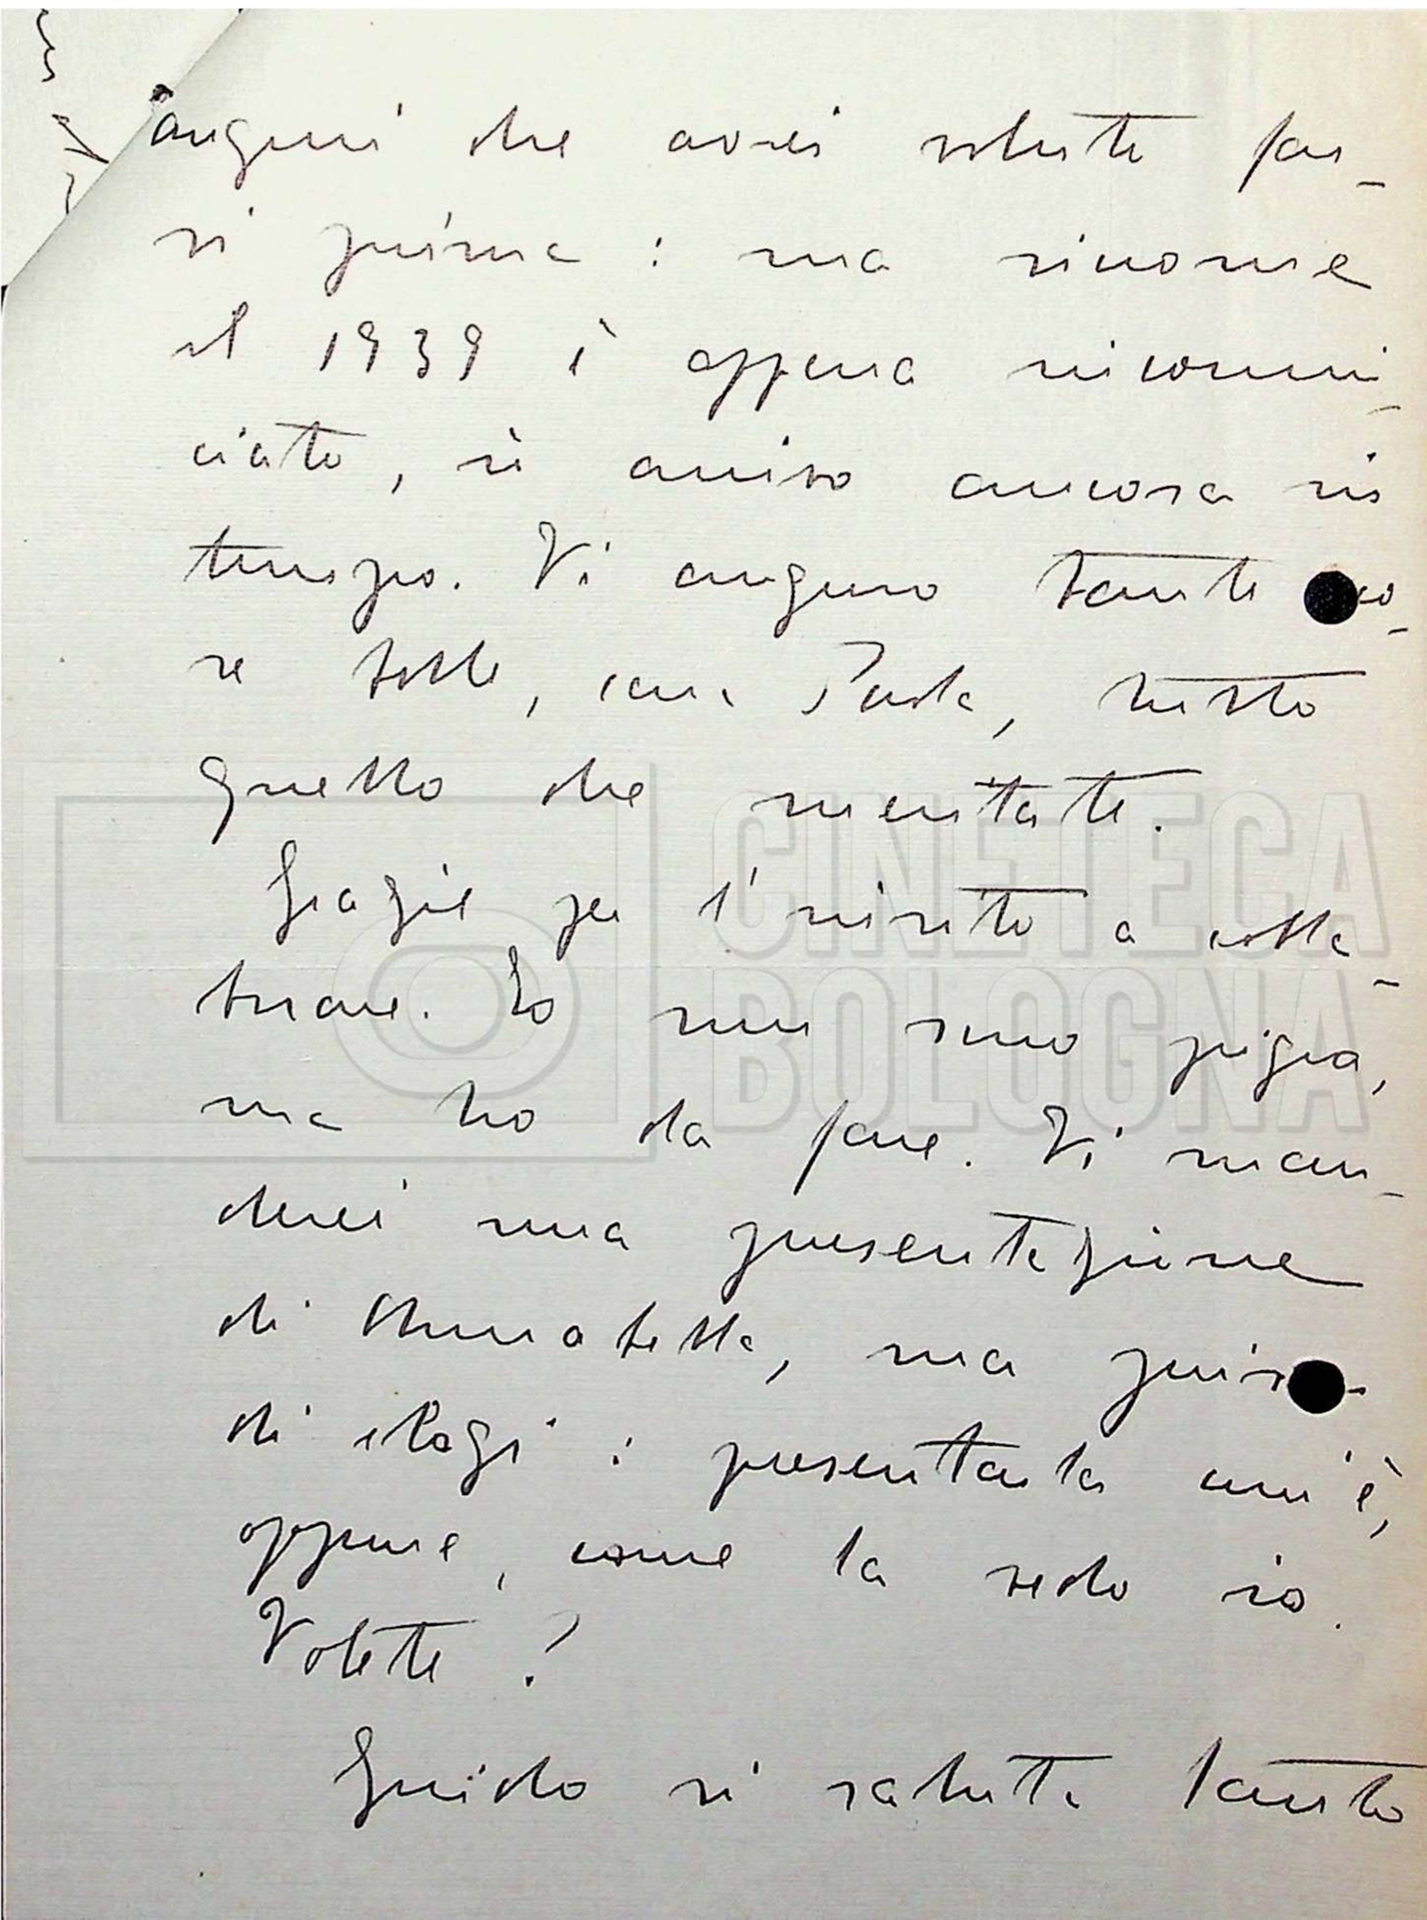 auguri che avrei voluto far-
vi prima: ma siccome
il 1939 è appena incomin-
ciato, vi arrivo ancora in
tempo. Vi auguro tante co-
se belle, cara Paola, tutto
quello che meritate.
Grazie per l'invito a colla-
borare. Io non sono pigra,
ma ho da fare. Vi man-
derei una presentazione
di, ma priva
di elogi: presentarla com'è,
oppure, come la vedo io.
Volete?
Guido vi saluta tanto
CINETECA
BOLOGNA